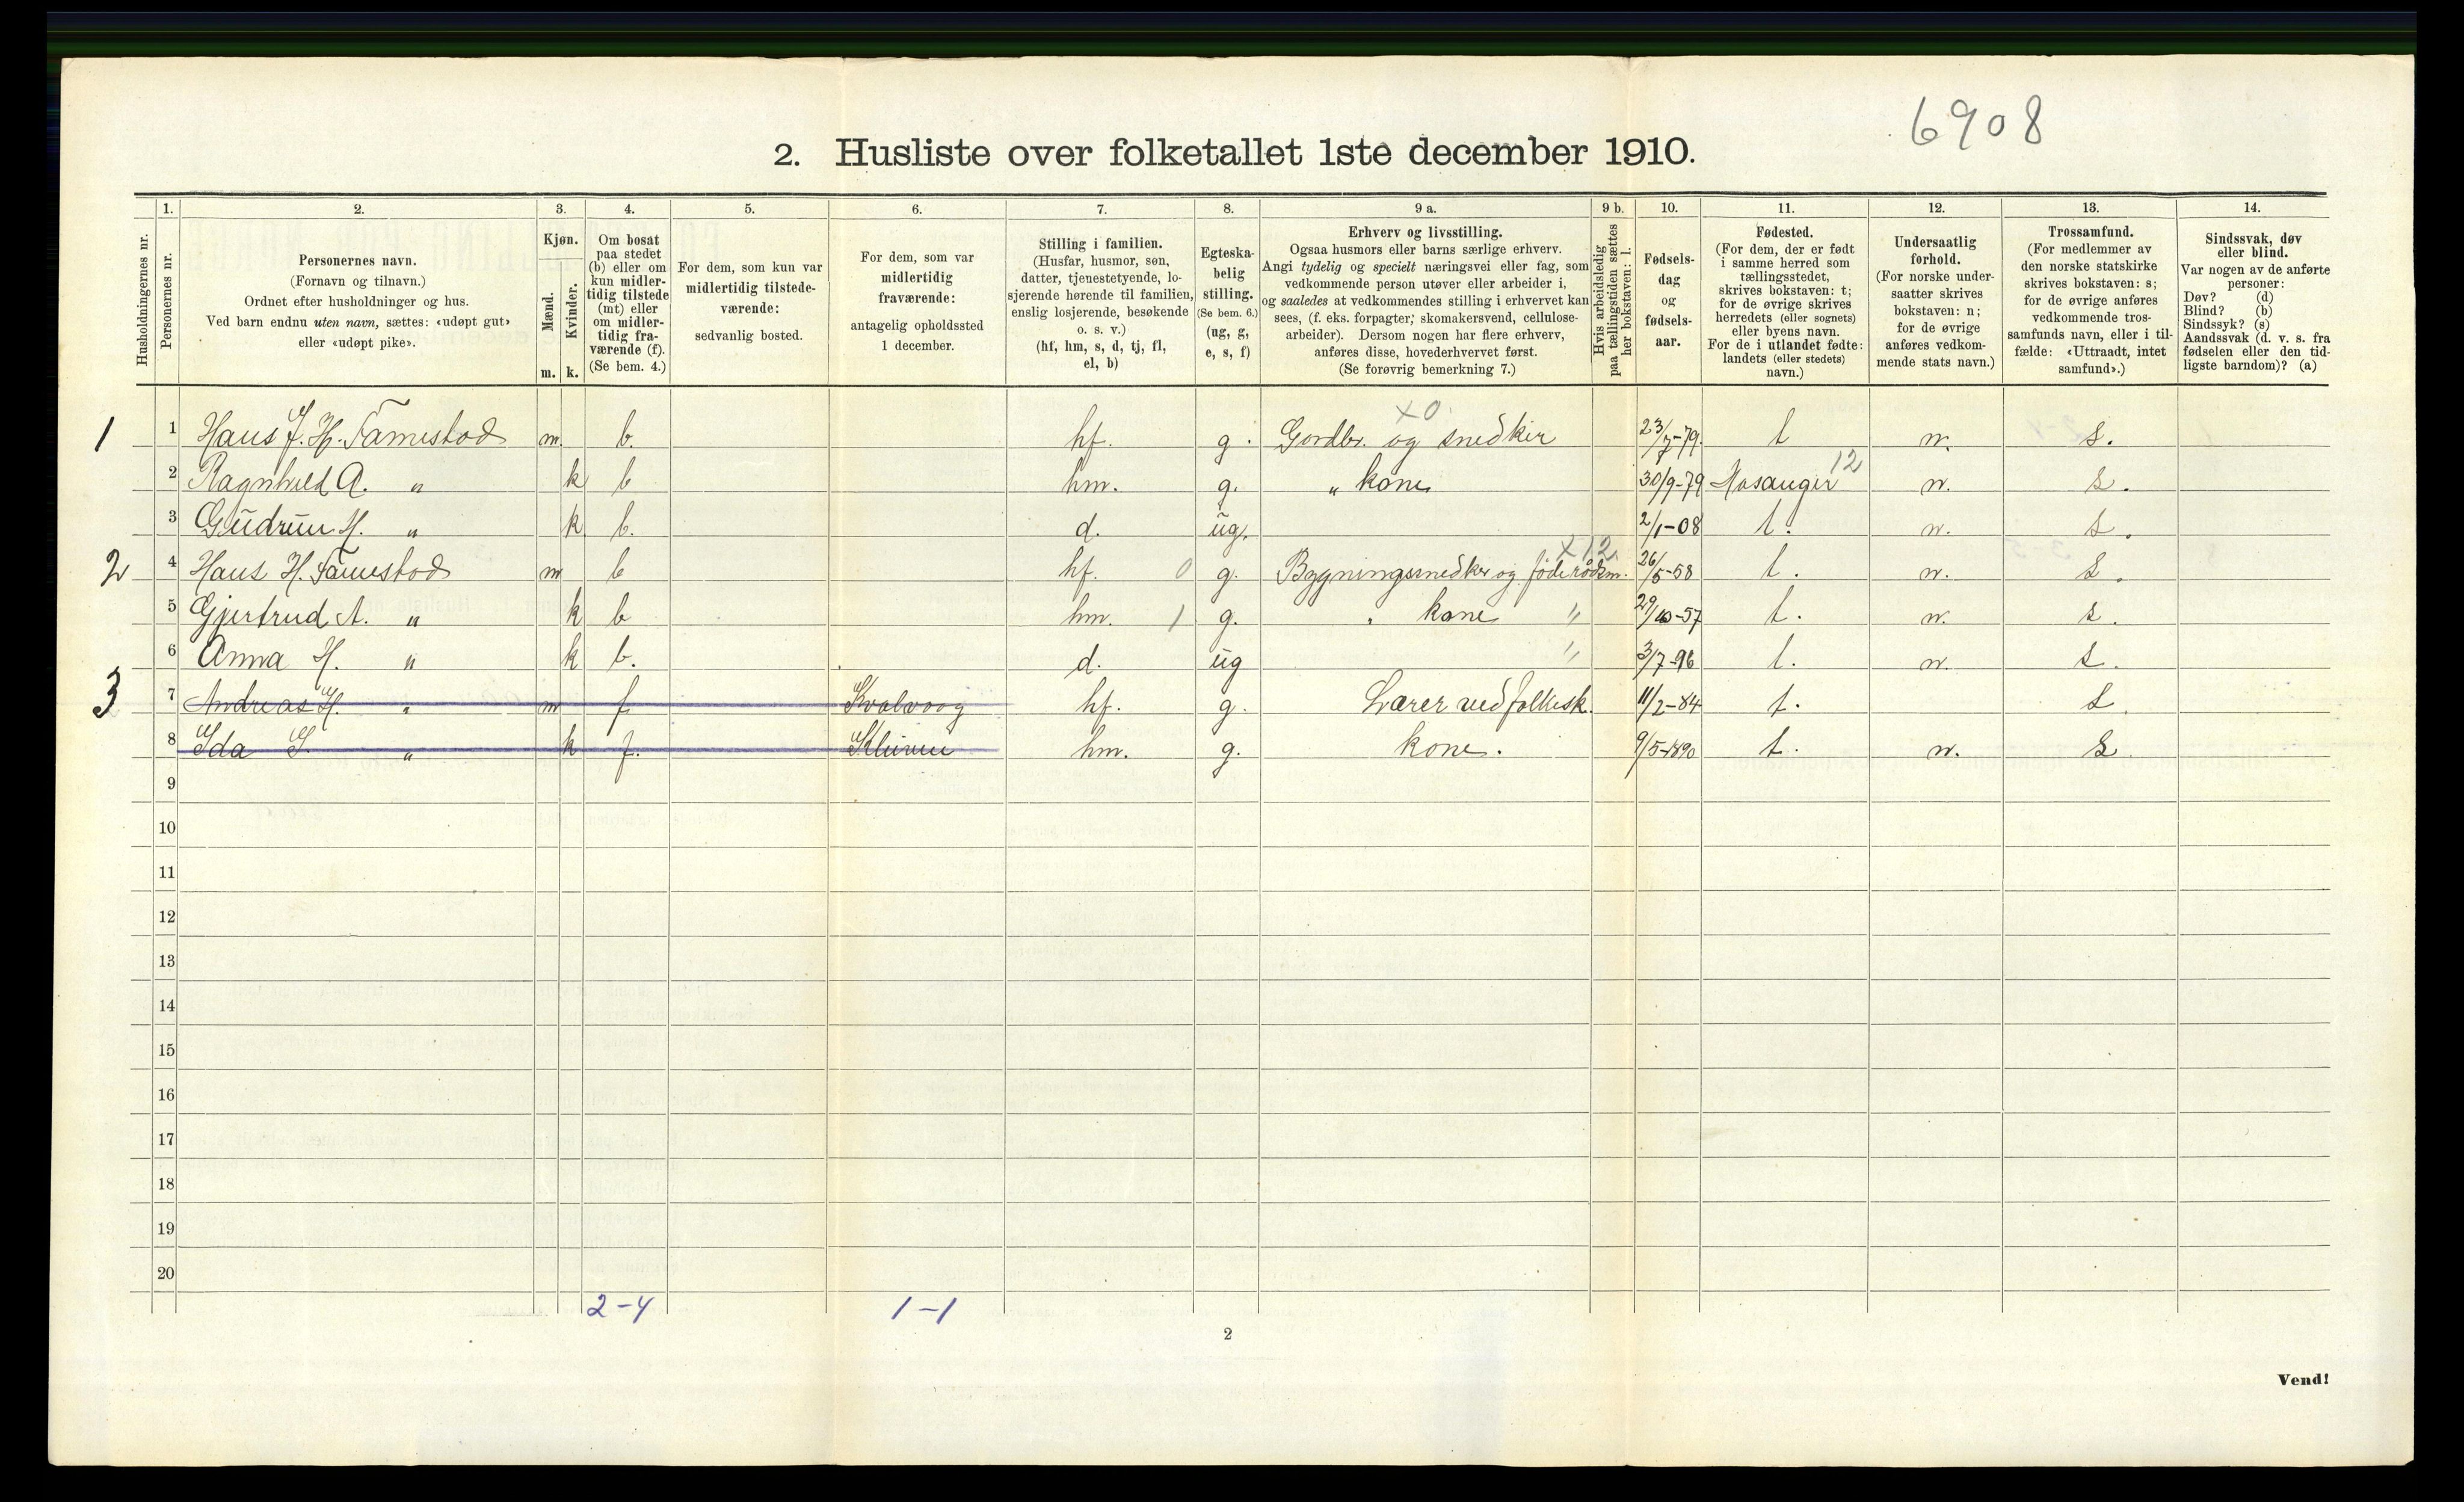 6908
2. Husliste over folketallet 1ste december 1910.
Husholdningernes nr.
1. Personernes nr.
2. Personernes navn.
(Fornavn og tilnavn.)
Ordnet efter husholdninger og hus.
Ved barn endnu uten navn, sættes: «udøpt gut»
eller «udøpt pike».
3. Kjøn.
Mænd. Kvinder.
m. k.
4. Om bosat
paa stedet
(b) eller om
kun midler-
tidig tilstede
(mt) eller
om midler-
tidig fra-
værende (f).
(Se bem. 4.)
5. For dem, som kun var
midlertidig tilstede-
værende:
sedvanlig bosted.
6. For dem, som var
midlertidig
fraværende:
antagelig opholdssted
1 december.
7. Stilling i familien.
(Husfar, husmor, søn,
datter, tjenestetyende, lo-
sjerende hørende til familien,
enslig losjerende, besøkende
o. s. v.)
(hf, hm, s, d, tj, fl,
el, b)
8. Egteska-
belig
stilling.
(Se bem. 6.)
(ug, g,
e, s, f)
9 a. Erhverv og livsstilling.
Ogsaa husmors eller barns særlige erhverv.
Angi tydelig og specielt næringsvei eller fag, som
vedkommende person utøver eller arbeider i,
og saaledes at vedkommendes stilling i erhvervet kan
sees, (f. eks. forpagter, skomakersvend, cellulose-
arbeider). Dersom nogen har flere erhverv,
anføres disse, hovederhvervet først.
(Se forøvrig bemerkning 7.)
9 b. Hvis arbeidsledig
paa tællingstiden sættes
her bokstaven: l.
10. Fødsels-
dag
og
fødsels-
aar.
11. Fødested.
(For dem, der er født
i samme herred som
tællingsstedet,
skrives bokstaven: t;
for de øvrige skrives
herredets (eller sognets)
eller byens navn.
For de i utlandet fødte:
landets (eller stedets)
navn.)
12. Undersaatlig
forhold.
(For norske under-
saatter skrives
bokstaven: n;
for de øvrige
anføres vedkom-
mende stats navn.)
13. Trossamfund.
(For medlemmer av
den norske statskirke
skrives bokstaven: s;
for de øvrige anføres
vedkommende tros-
samfunds navn, eller i til-
fælde: «Uttraadt, intet
samfund».)
14. Sindssvak, døv
eller blind.
Var nogen av de anførte
personer:
Døv? (d)
Blind? (b)
Sindssyk? (s)
Aandssvak (d. v. s. fra
fødselen eller den tid-
ligste barndom)? (a)
x0
1 1 Hans J. H. Tamestad m b. hf. g. Gordbr. og snedker 23/7-79. t n. s.
2 Ragnhild A. " k b hm. g. " kone 30/9-79 Hosanger 12 n. s.
3 Gudrun H. " k b. d. ug. 2/1-08 t. n. s.
x12
2 4 Hans H. Tamestad m b hf. 0 g. Bygningssnedker og föderådsm. 26/5-58 t. n. s.
5 Gjertrud A. " k b hm. 1 g. " kone " 29/10-57 t. n. s.
6 Anna H. " k b. d. ug " 3/7-96 t. n. s.
3 7 Andreas H. " m f Kvalvaag hf. g. Lærer ved folkesk. 11/2-84 t. s
8 Ida S. " k f. hm. g. kone. 9/5-1890 t. n. s.
9
10
11
12
13
14
15
16
17
18
19
20
2-4 1-1
2
Vend!